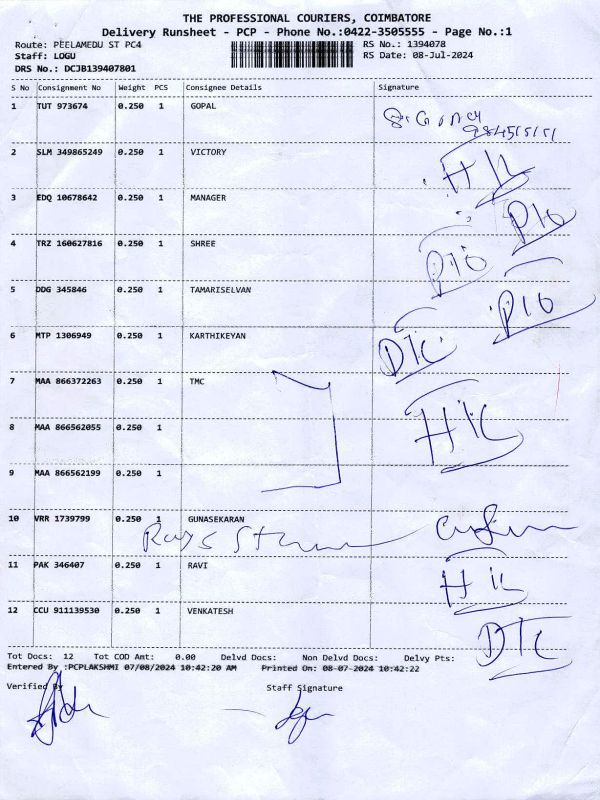 THE PROFESSIONAL COURIERS, COIMBATORE
Delivery Runsheet - PCP - Phone No.:0422-3505555 - Page No.:1
Route: PEELAMEDU ST PC4 RS No.: 1394078
Staff: LOGU RS Date: 08-Jul-2024
DRS No.: DCJB139407801
S No Consignment No Weight PCS Consignee Details Signature
1 TUT 973674 0.250 1 GOPAL
2 SLM 349865249 0.250 1 VICTORY HIL
3 EDQ 10678642 0.250 1 MANAGER PIO
4 TRZ 160627816 0.250 1 SHREE PIO
5 DDG 345846 0.250 1 TAMARISELVAN PIO
6 MTP 1306949 0.250 1 KARTHIKEYAN DTC
7 MAA 866372263 0.250 1 TMC
8 MAA 866562055 0.250 1 HIL
9 MAA 866562199 0.250 1
10 VRR 1739799 0.250 1 GUNASEKARAN
11 PAK 346407 0.250 1 RAVI HIL
12 CCU 911139530 0.250 1 VENKATESH DTC
Tot Docs: 12 Tot COD Amt: 0.00 Delvd Docs: Non Delvd Docs: Delvy Pts:
Entered By :PCPLAKSHMI 07/08/2024 10:42:20 AM Printed On: 08-07-2024 10:42:22
Verified By Staff Signature